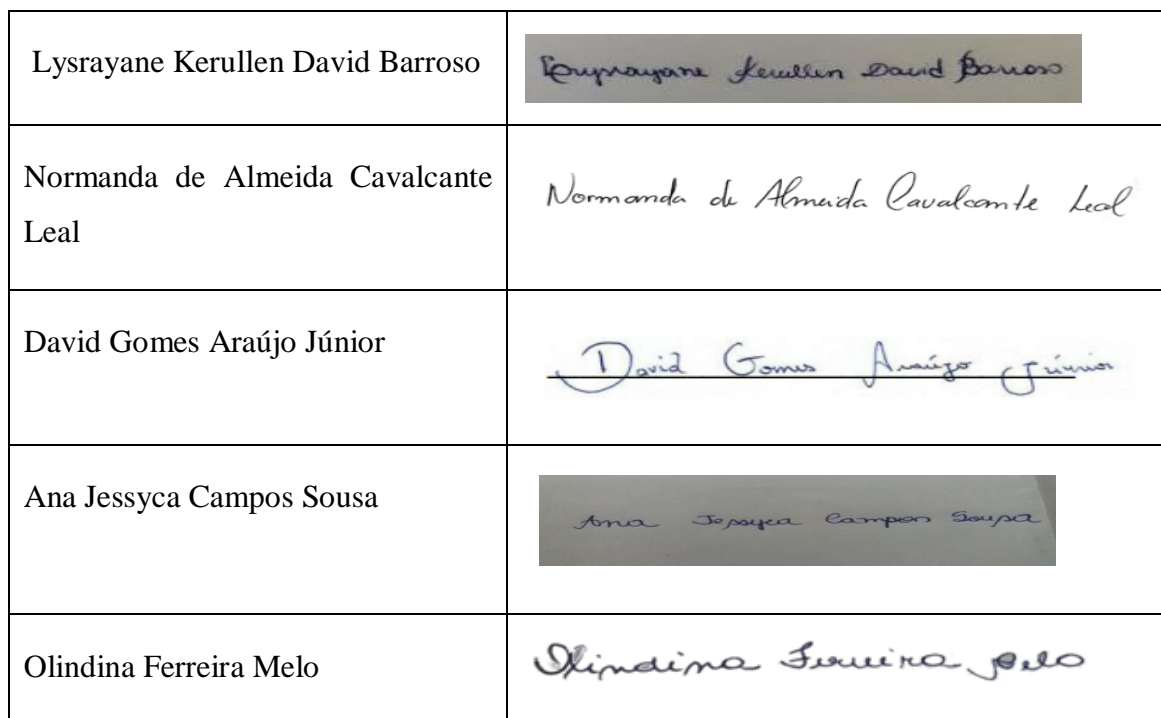 Lysrayane Kerullen David Barroso
Lysrayane Kerullen David Barroso
Normanda de Almeida Cavalcante
Leal
Normanda de Almeida Cavalcante Leal
David Gomes Araújo Júnior
David Gomes Araújo Júnior
Ana Jessyca Campos Sousa
Ana Jessyca Campos Sousa
Olindina Ferreira Melo
Olindina Ferreira Melo